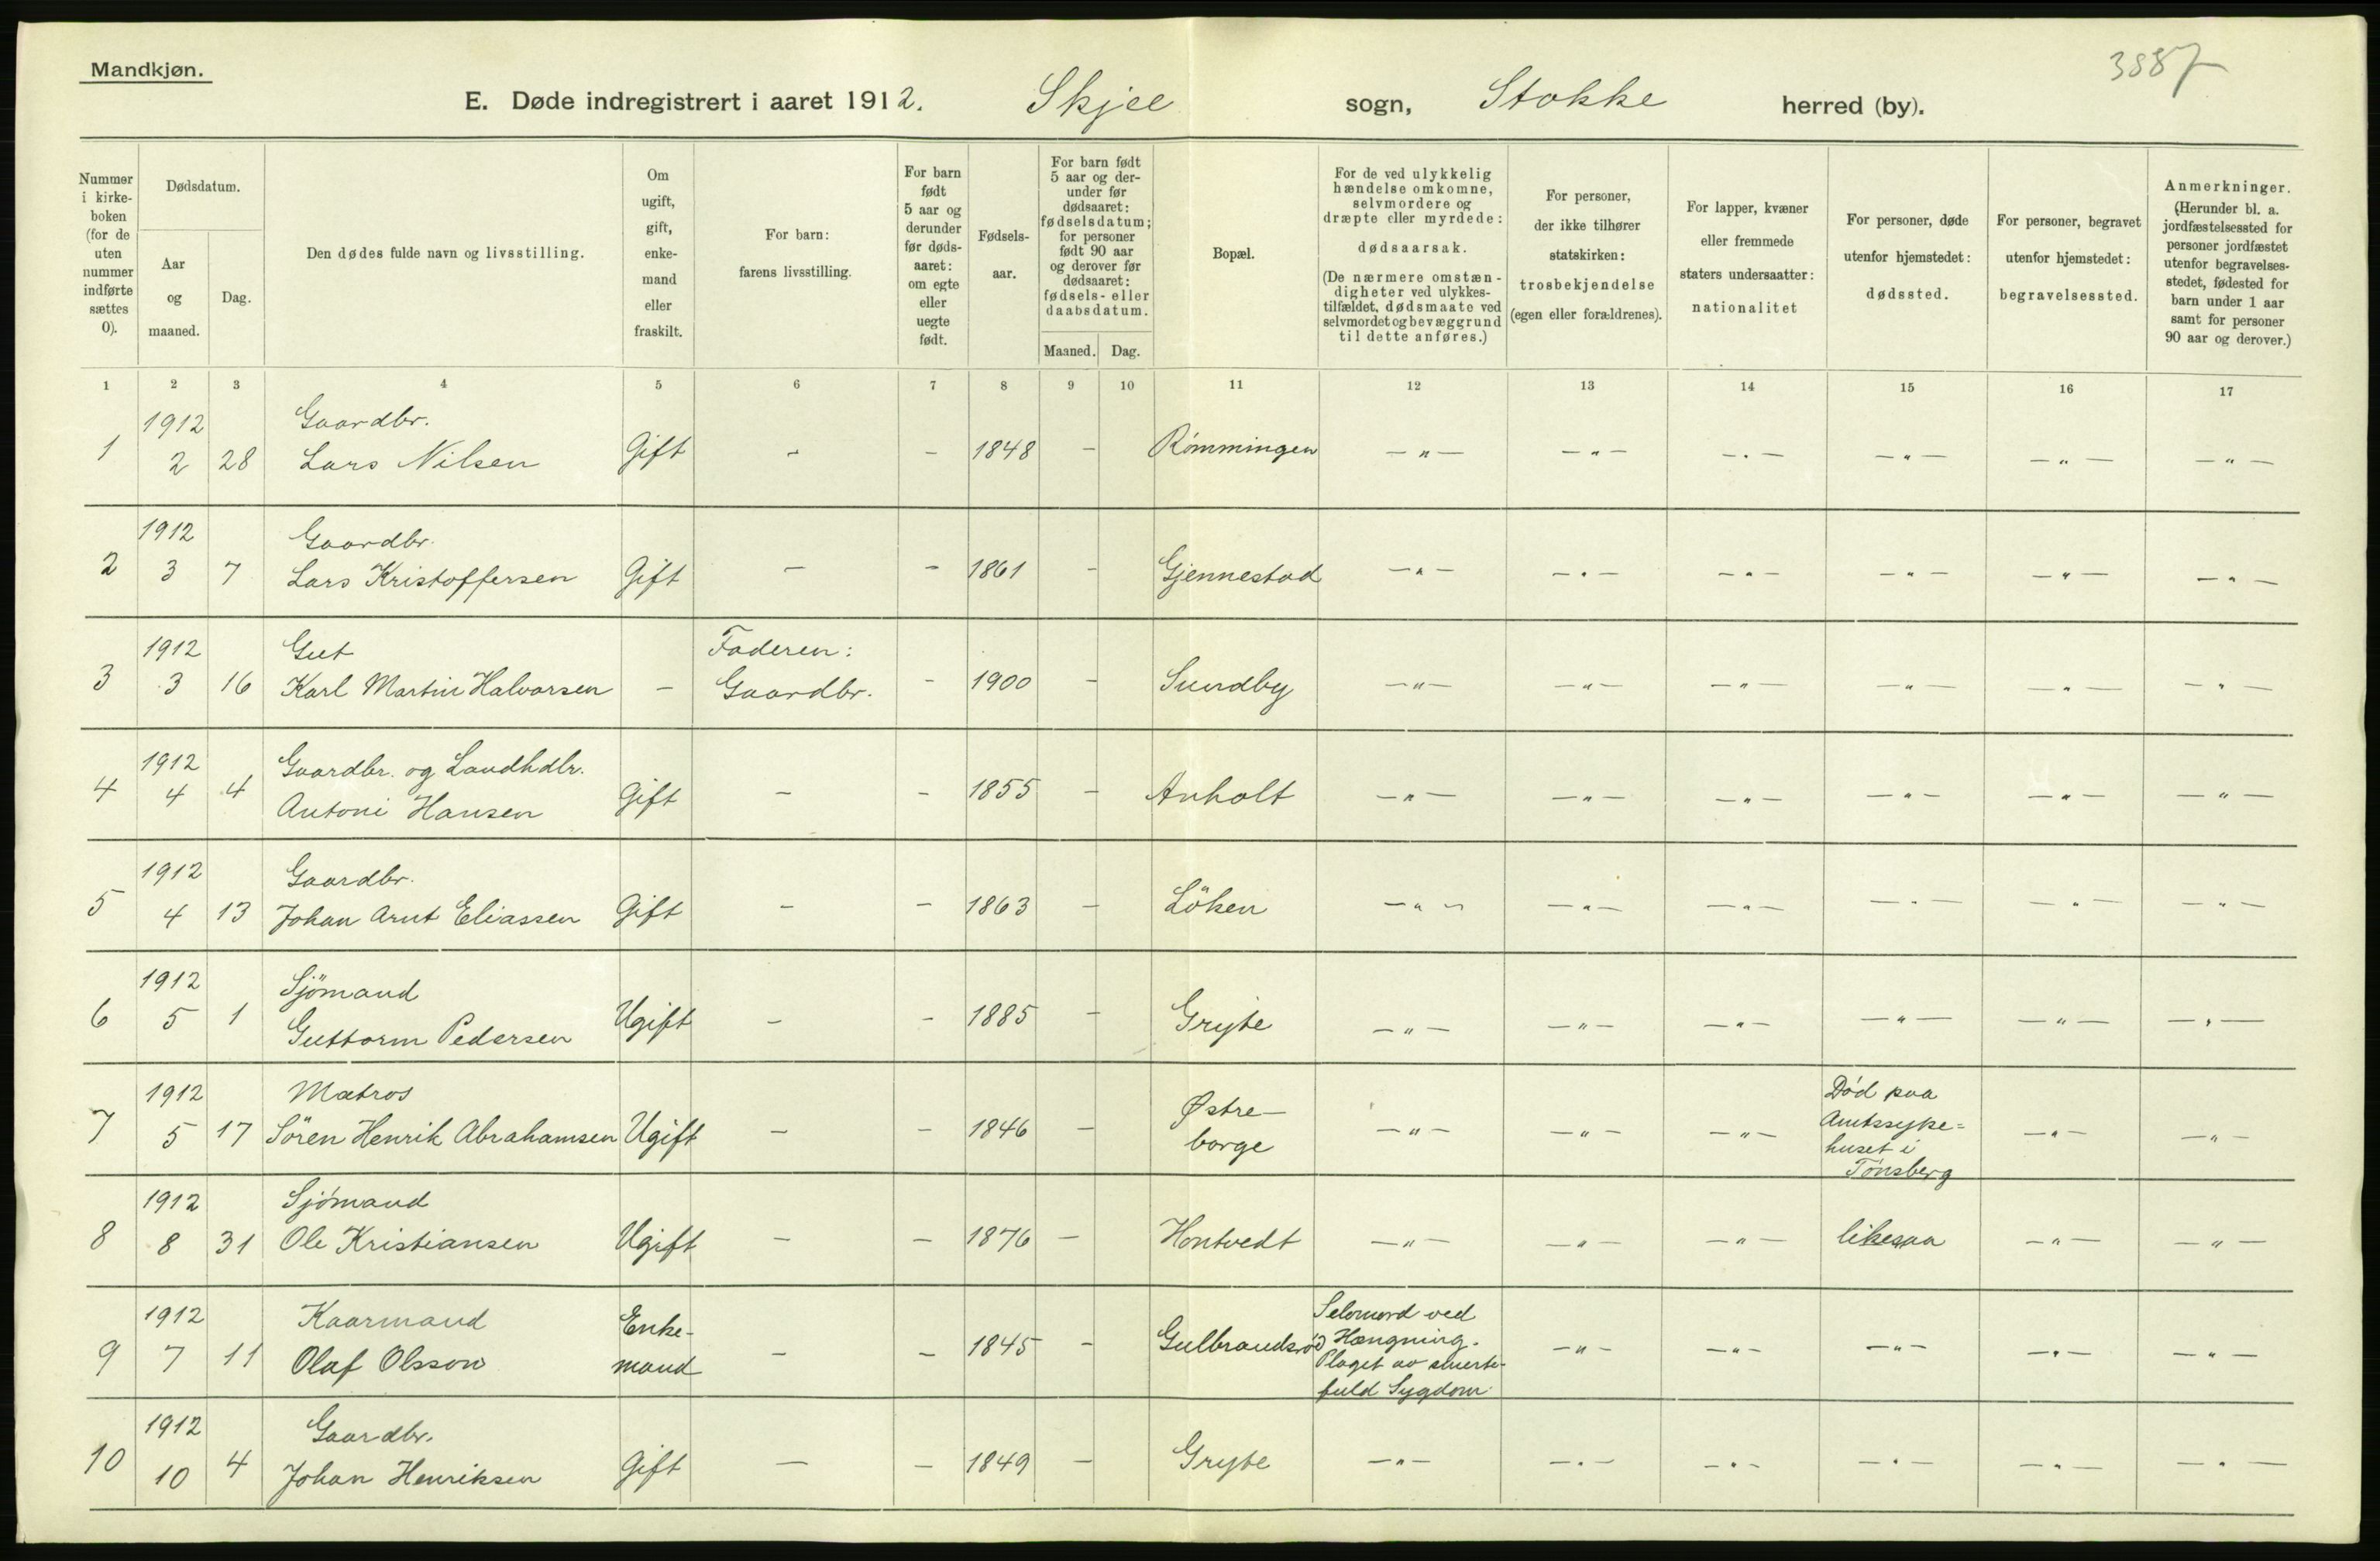 Mandkjøn.
3887
E. Døde indregistrert i aaret 1912. Skjee sogn, Stokke herred (by).
Nummer i kirkeboken (for de uten nummer indførte sættes 0).
Dødsdatum.
Aar og maaned.
Dag.
Den dødes fulde navn og livsstilling.
Om ugift, gift, enkemand eller fraskilt.
For barn: farens livsstilling.
For barn født 5 aar og derunder før dødsaaret: om egte eller uegte født.
Fødselsaar.
For barn født 5 aar og derunder før dødsaaret: fødselsdatum; for personer født 90 aar og derover før dødsaaret: fødsels- eller daabsdatum.
Maaned.
Dag.
Bopæl.
For de ved ulykkelig hændelse omkomne, selvmordere og dræpte eller myrdede: dødsaarsak.
(De nærmere omstændigheter ved ulykkestilfældet, dødsmaate ved selvmordet og bevæggrund til dette anføres.)
For personer, der ikke tilhører statskirken: trosbekjendelse (egen eller forældrenes).
For lapper, kvæner eller fremmede staters undersaatter: nationalitet
For personer, døde utenfor hjemstedet: dødssted.
For personer, begravet utenfor hjemstedet: begravelsessted.
Anmerkninger.
(Herunder bl. a. jordfæstelsessted for personer jordfæstet utenfor begravelsesstedet, fødested for barn under 1 aar samt for personer 90 aar og derover.)
1 2 3 4 5 6 7 8 9 10 11 12 13 14 15 16 17
1912 Gaardbr.
1 2 28 Lars Nilsen Gift - - 1848 - Römmingen -"- -"- -"- -"- -"- -"-
1912 Gaardbr.
2 3 7 Lars Kristoffersen Gift - - 1861 - Gjennestad -"- -"- -"- -"- -"- -"-
1912 Gut Faderen:
3 3 16 Karl Martin Halvorsen - Gaardbr. - 1900 - Sundby -"- -"- -"- -"- -"- -"-
1912 Gaardbr. og Landhdlr.
4 4 4 Antoni Hansen Gift - - 1855 - Anholt -"- -"- -"- -"- -"- -"-
1912 Gaardbr.
5 4 13 Johan Arnt Eliassen Gift - - 1863 - Löken -"- -"- -"- -"- -"- -"-
1912 Sjömand
6 5 1 Guttorm Pedersen Ugift - - 1885 - Gryte -"- -"- -"- -"- -"- -"-
1912 Matros Østre- Död paa
7 5 17 Sören Henrik Abrahamsen Ugift - - 1846 - borge -"- -"- -"- Amtssyke= -"- -"-
huset i
Tönsberg
1912 Sjömand
8 8 31 Ole Kristiansen Ugift - - 1876 - Hontvedt -"- -"- -"- likesaa -"- -"-
1912 Kaarmand Enke- Selvmord ved
9 7 11 Olaf Olsson mand - - 1845 - Gulbrandsröd Hængning. -"- -"- -"- -"- -"-
Plaget av smerte-
fuld Sygdom.
1912 Gaardbr.
10 10 4 Johan Henriksen Gift - - 1849 - Gryte -"- -"- -"- -"- -"- -"-